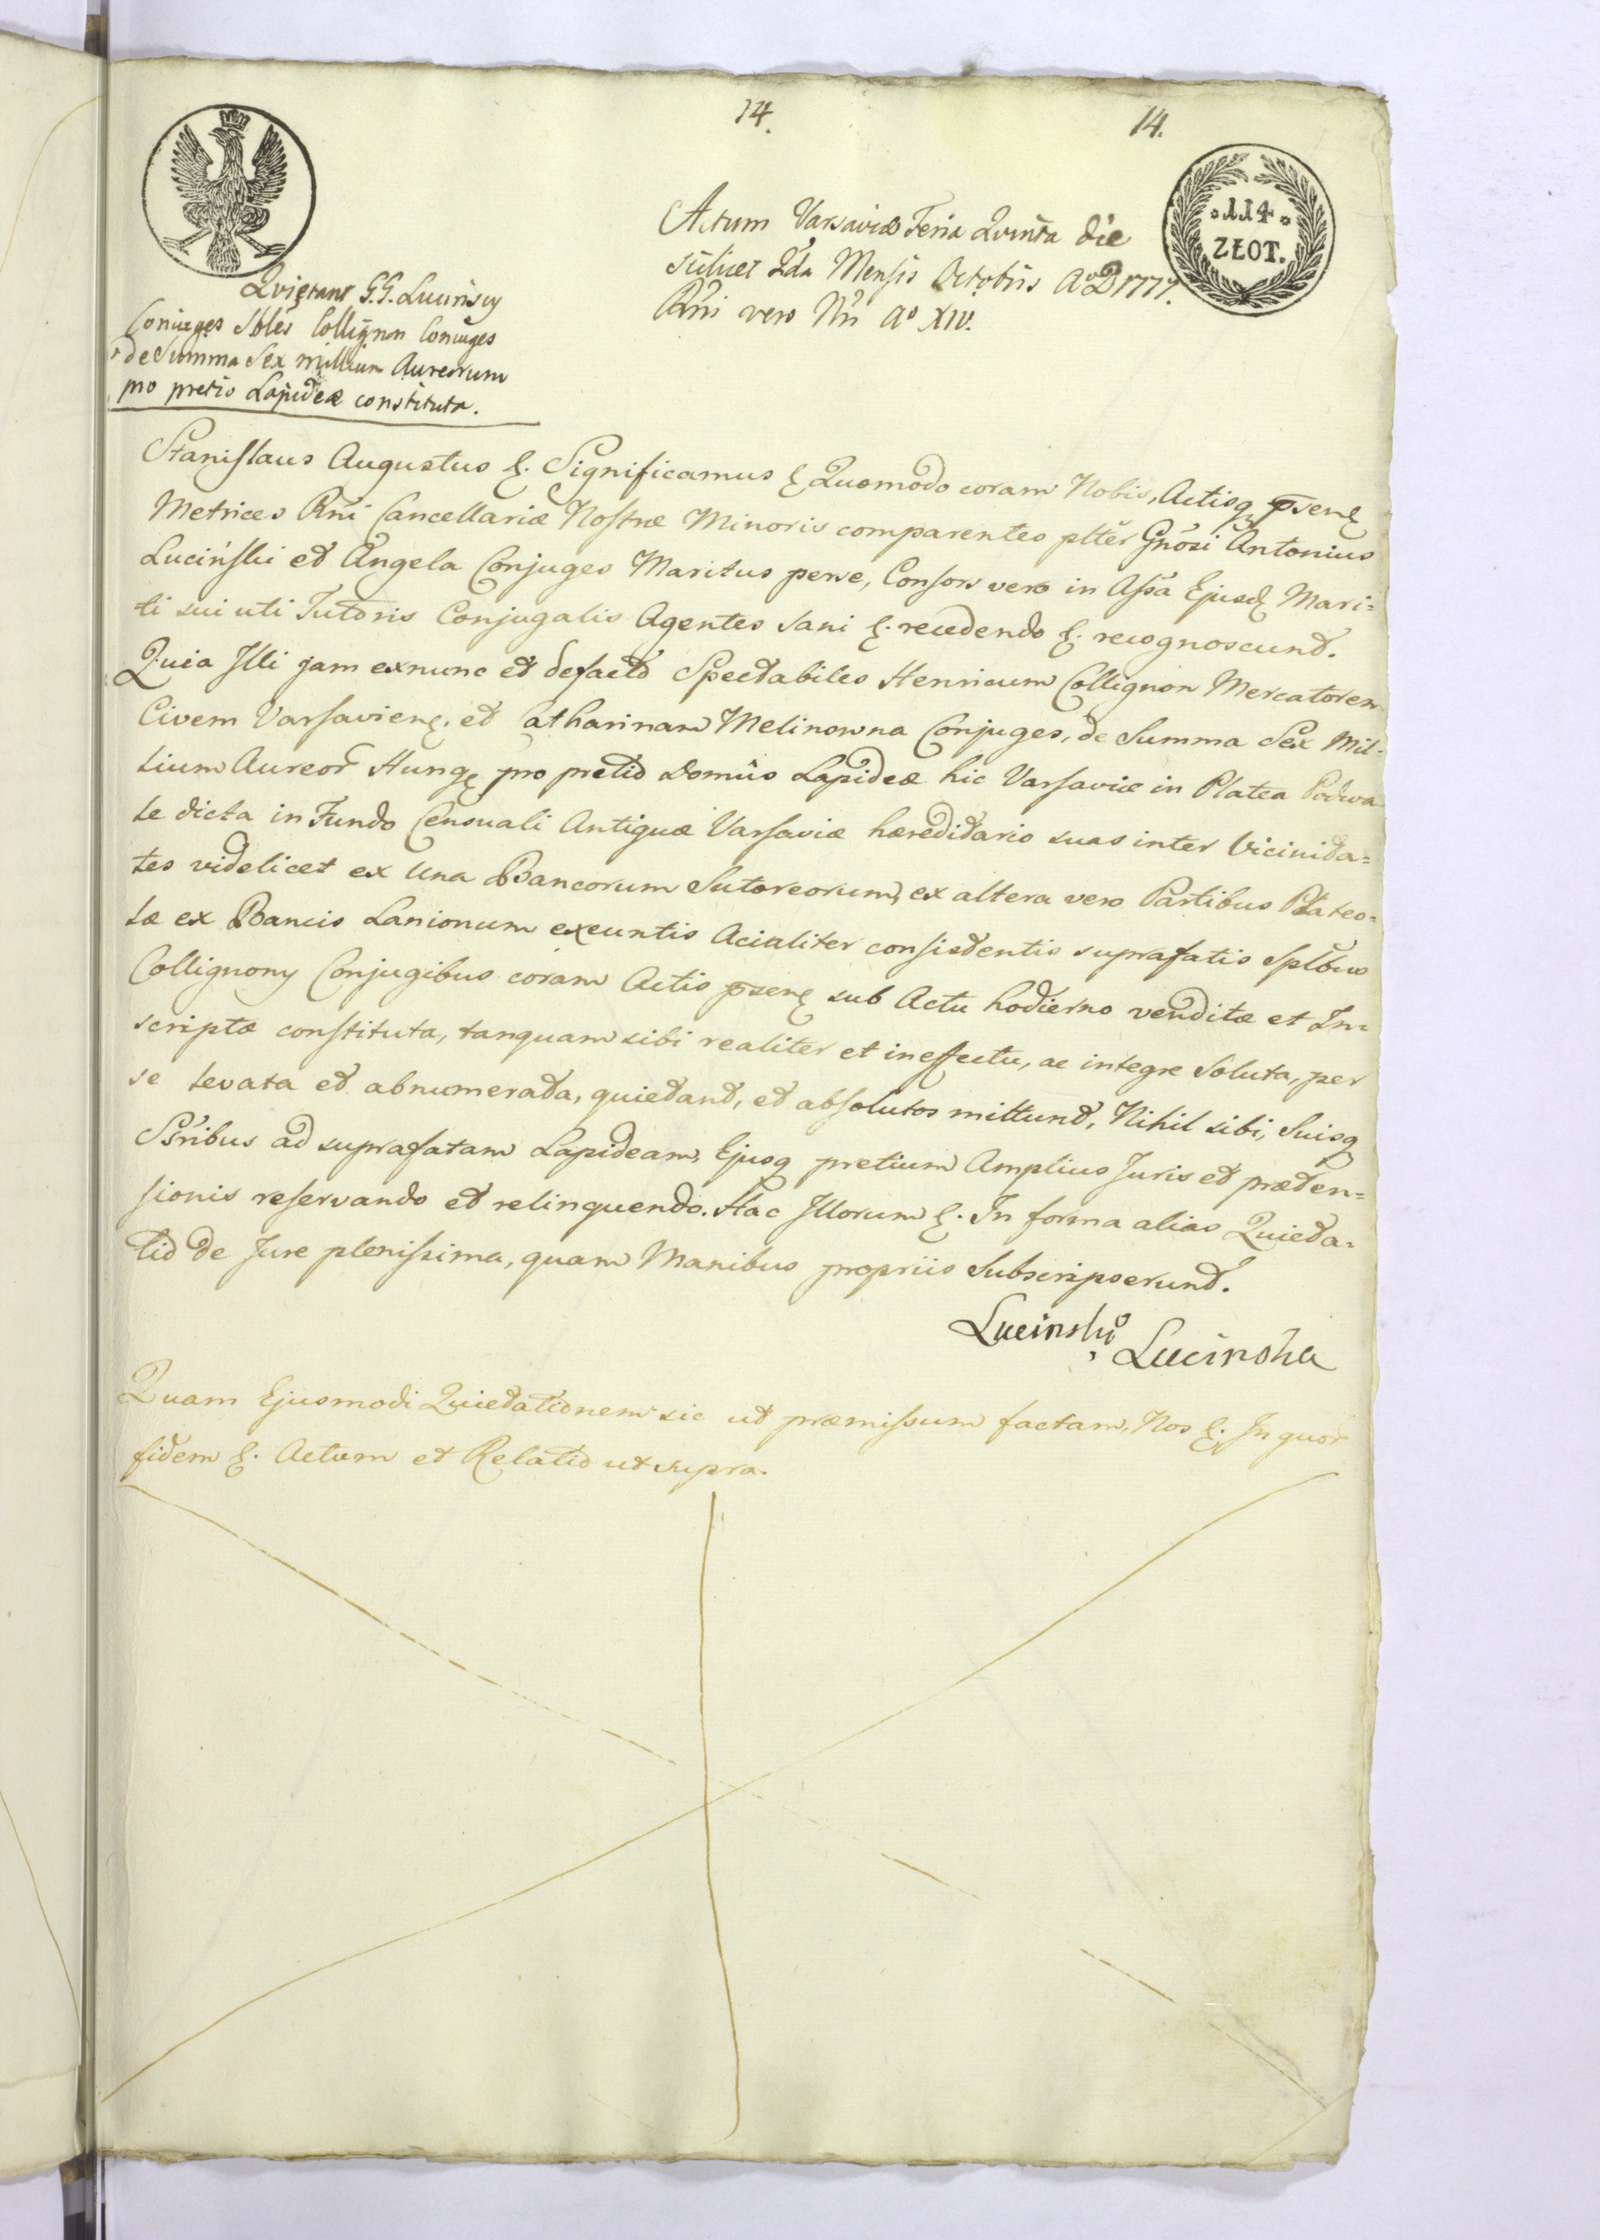 14.
14.
114
ZŁOT.
Actum Varsaviæ Feria Quinta die
scilicet 2da Mensis Octobris Ao D 1777.
Rñi vero Nri Ao XIV.
Quietant G.G. Lucińscy
Coniuges Sbles Collignon Coniuges
de Summa Sex millium Aureorum
pro pretio Lapideæ constituta.
Stanislaus Augustus &. Significamus & Quomodo coram Nobis, Actisq psen&
Metrices Rñi Cancellariæ Nostræ Minoris comparentes plter Gnosi Antonius
Luciński et Angela Conjuges Maritus perse, Consors vero in Assa Ejusd& Mari=
ti sui uti Tutoris Conjugalis Agentes sani &. recedendo &. recognoscunt.
Quia Illi jam exnunc et defacto Spectabiles Henricum Collignon Mercatorem
Civem Varsavien&. et Catharinam Melinowna Conjuges, de Summa Sex Mil=
lium Aureor Hung& pro pretio Domûs Lapideæ hic Varsaviæ in Platea Podwa
le dicta in Fundo Censuali Antiquæ Varsaviæ hæreditario suas inter Vicinita=
tes videlicet ex una Bancorum Sutoreorum, ex altera vero Partibus Plateo=
læ ex Bancis Lanionum exeuntis Acialiter consistentis suprafatis Splbus
Collignony Conjugibus coram Actis psen& sub Actu hodierno venditæ et In=
scriptæ constituta, tanquam sibi realiter et ineffectu, ac integre Soluta, per
se levata et abnumerata, quietant, et absolutos mittunt, Nihil sibi, Suisq
Sŕibus ad suprafatam Lapideam, Ejusq pretium Amplius Juris et præten=
sionis reservando et relinquendo. Hac Illorum &. In forma alias Quieta=
tio de Jure plenissima, quam Manibus propriis Subscripserunt.
Lucinski
Lucinska
Quam Ejusmodi Quietationem sic ut præmissum factam, Nos &. In quor
fidem &. Actum et Relatio ut supra.